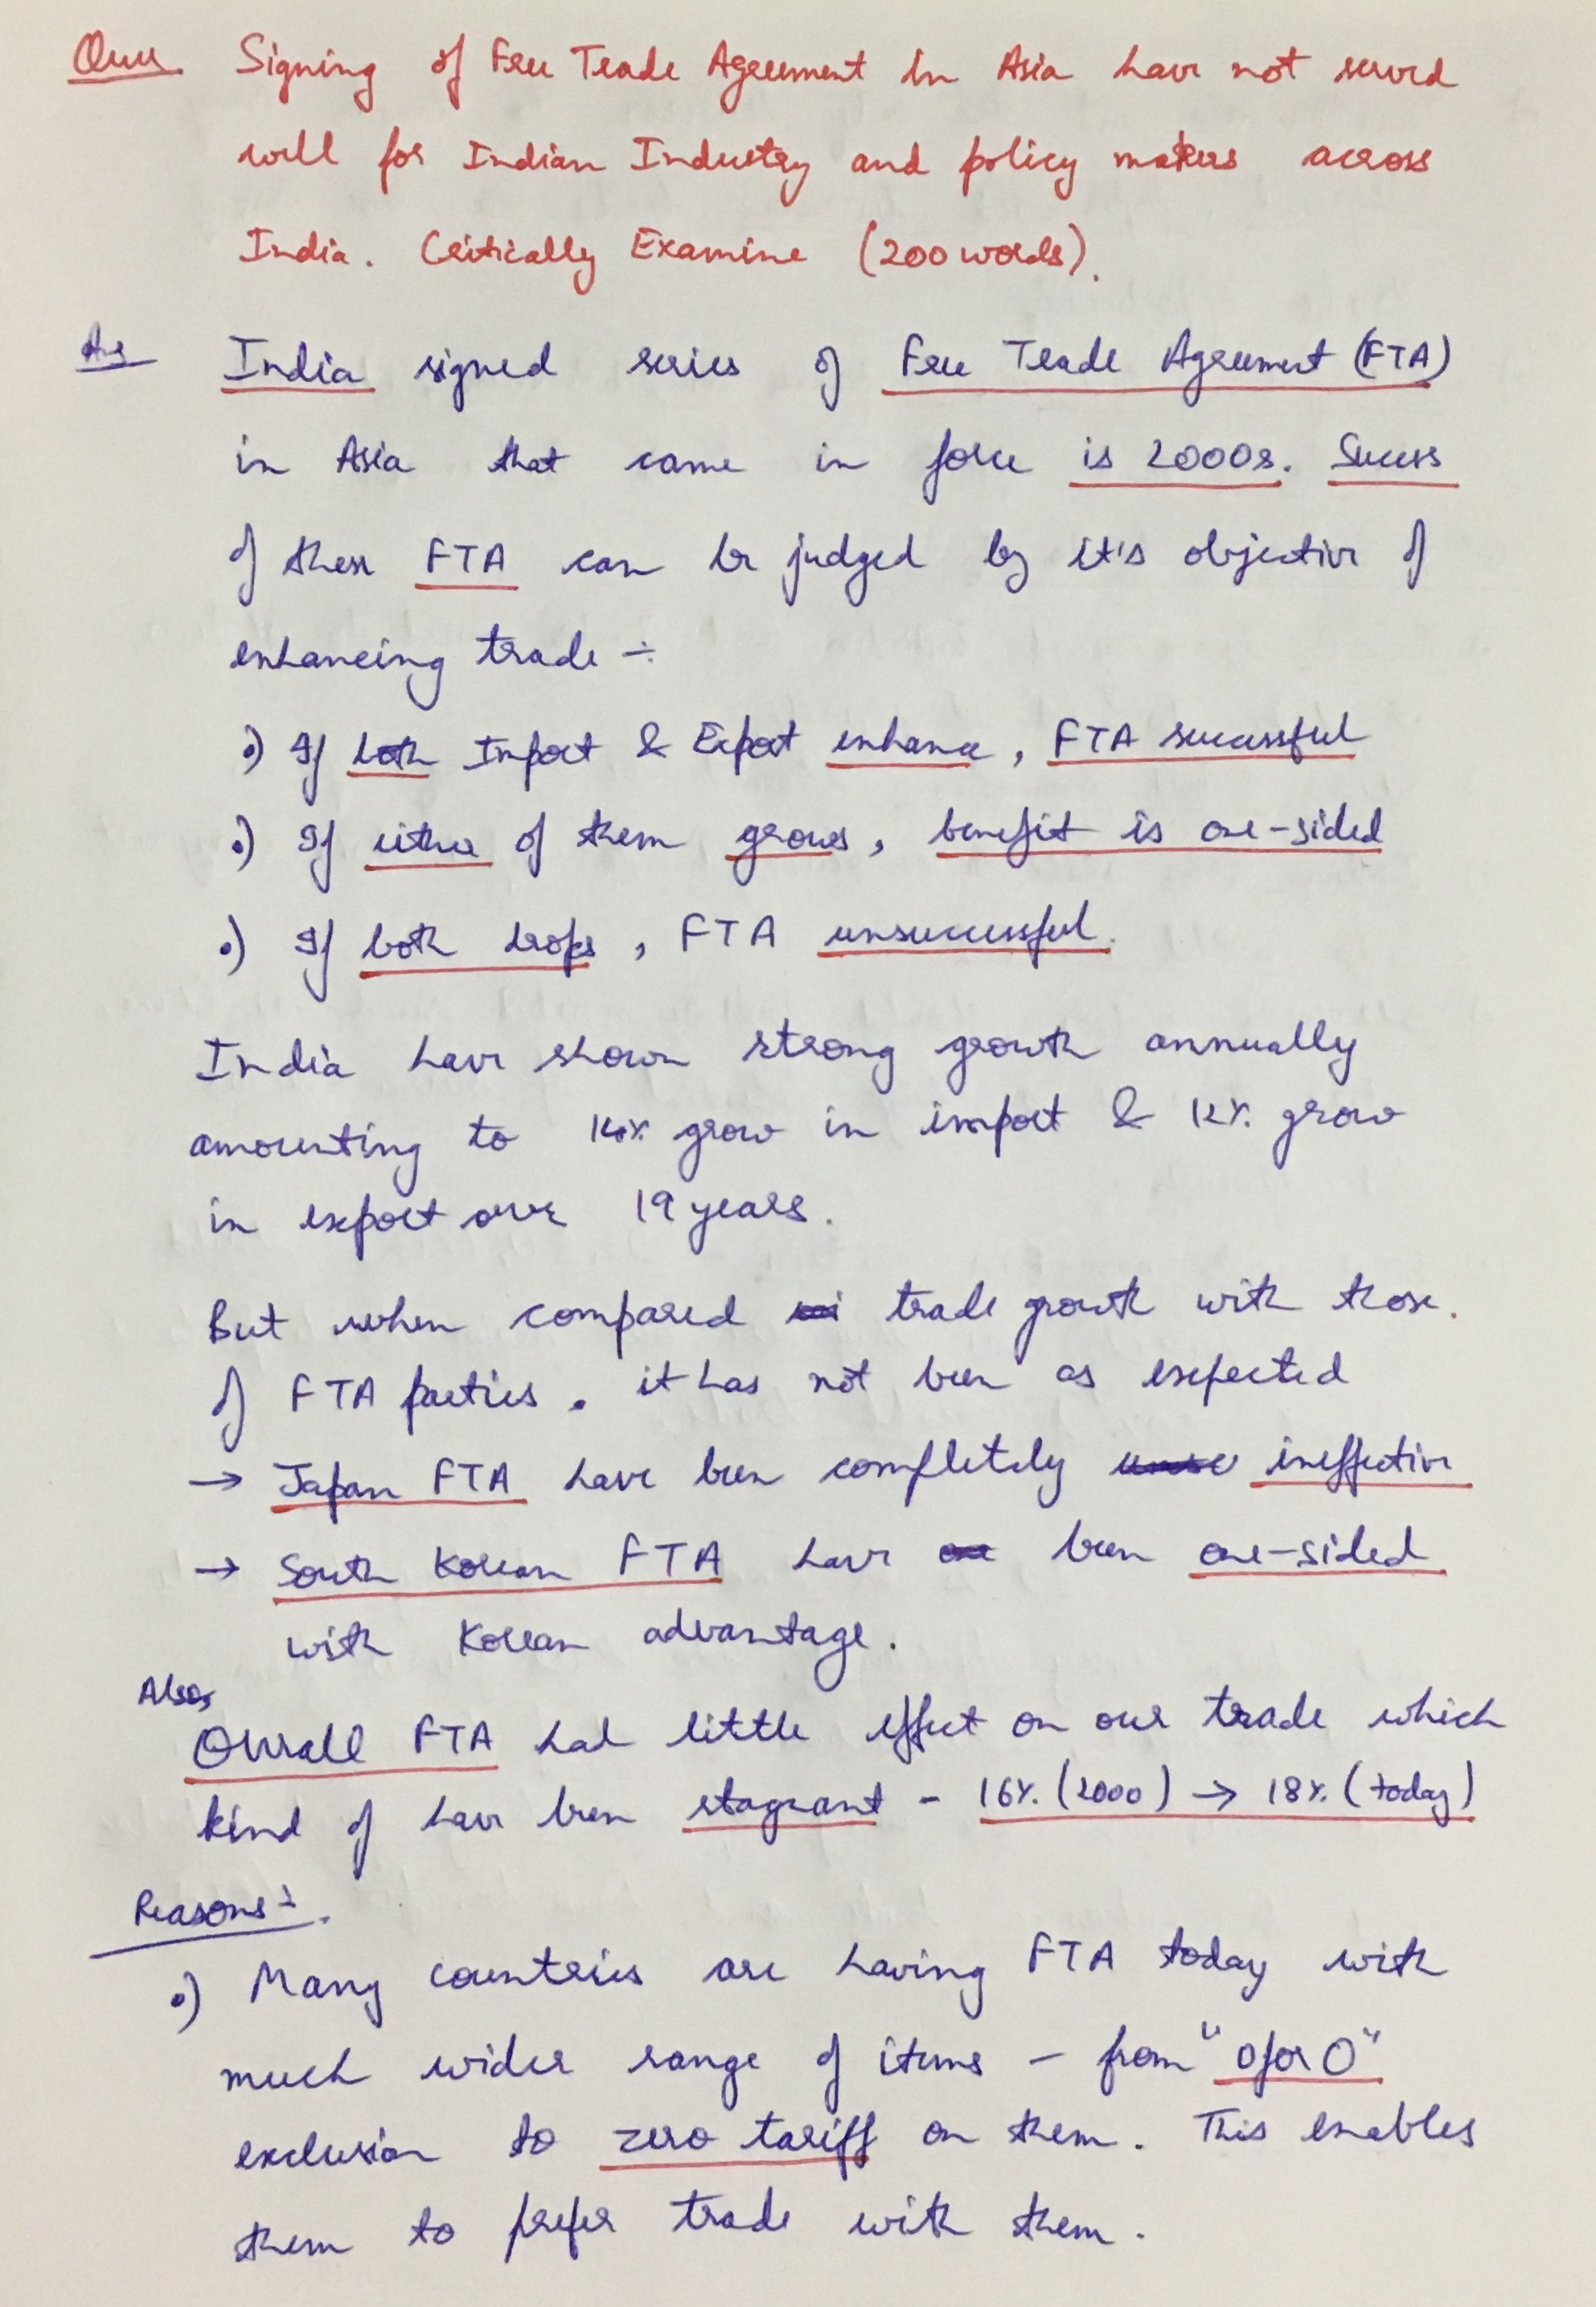 Ques Signing of Free Trade Agreement in Asia have not served
well for Indian Industry and policy makers across
India. Critically Examine (200 words).
Ans India signed series of Free Trade Agreement (FTA)
in Asia that came in force is 2000s. Sucess
of these FTA can be judged by it's objective of
enhancing trade ÷
•) If both Import & Export enhance, FTA successful
•) If either of them grows, benefit is one-sided
•) If both drops, FTA unsuccessful.
India have shown strong growth annually
amounting to grow in import & 12% grow
in export over 19 years.
But when compared trade growth with those.
of FTA parties. it has not been as expected
→ Japan FTA have been completely ineffective
→ South Korean FTA have been one-sided
with Korean advantage.
Also,
Overall FTA had little effect on our trade which
kind of have been stagnant - 16% (2000) → 18% (today)
Reasons:-
•) Many countries are having FTA today with
much wider range of items - from "0 for 0"
exclusion to zero tariff on them. This enables
them to prefer trade with them.